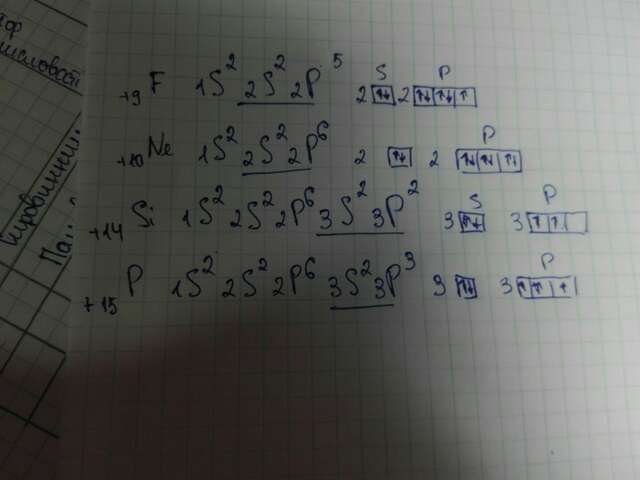 +9 F 1S² 2S² 2P⁵ S P 2 ↑↓ 2 ↑↓ ↑↓ ↑
+10 Ne 1S² 2S² 2P⁶ P 2 ↑↓ 2 ↑↓ ↑↓ ↑↓
+14 Si 1S² 2S² 2P⁶ 3S² 3P² S P 3 ↑↓ 3 ↑ ↑
+15 P 1S² 2S² 2P⁶ 3S² 3P³ P 3 ↑↓ 3 ↑ ↑ ↑